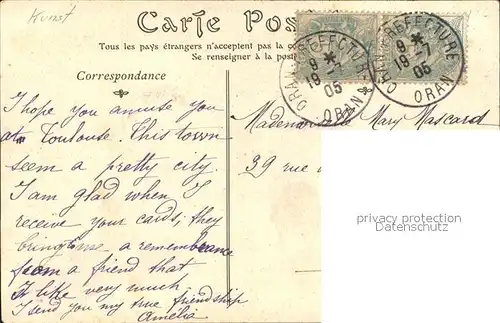 Kunst
Carte Pos
Tous les pays étrangers n'acceptent pas la co
Se renseigner à la poste
Correspondance
ORAN-PREFECTURE
9 *
19 -7
05
ORAN
ORAN-PREFECTURE
9 *
19 -7
05
ORAN
I hope you amuse you
at Toulouse. This town
seem a pretty city.
I am glad when I
receive your cards; they
bring to me a remembrance
from a friend that
I like very much
I send you my true friendship
Amélia
Mademoiselle Mary Mascard
39 rue
privacy protection
Datenschutz